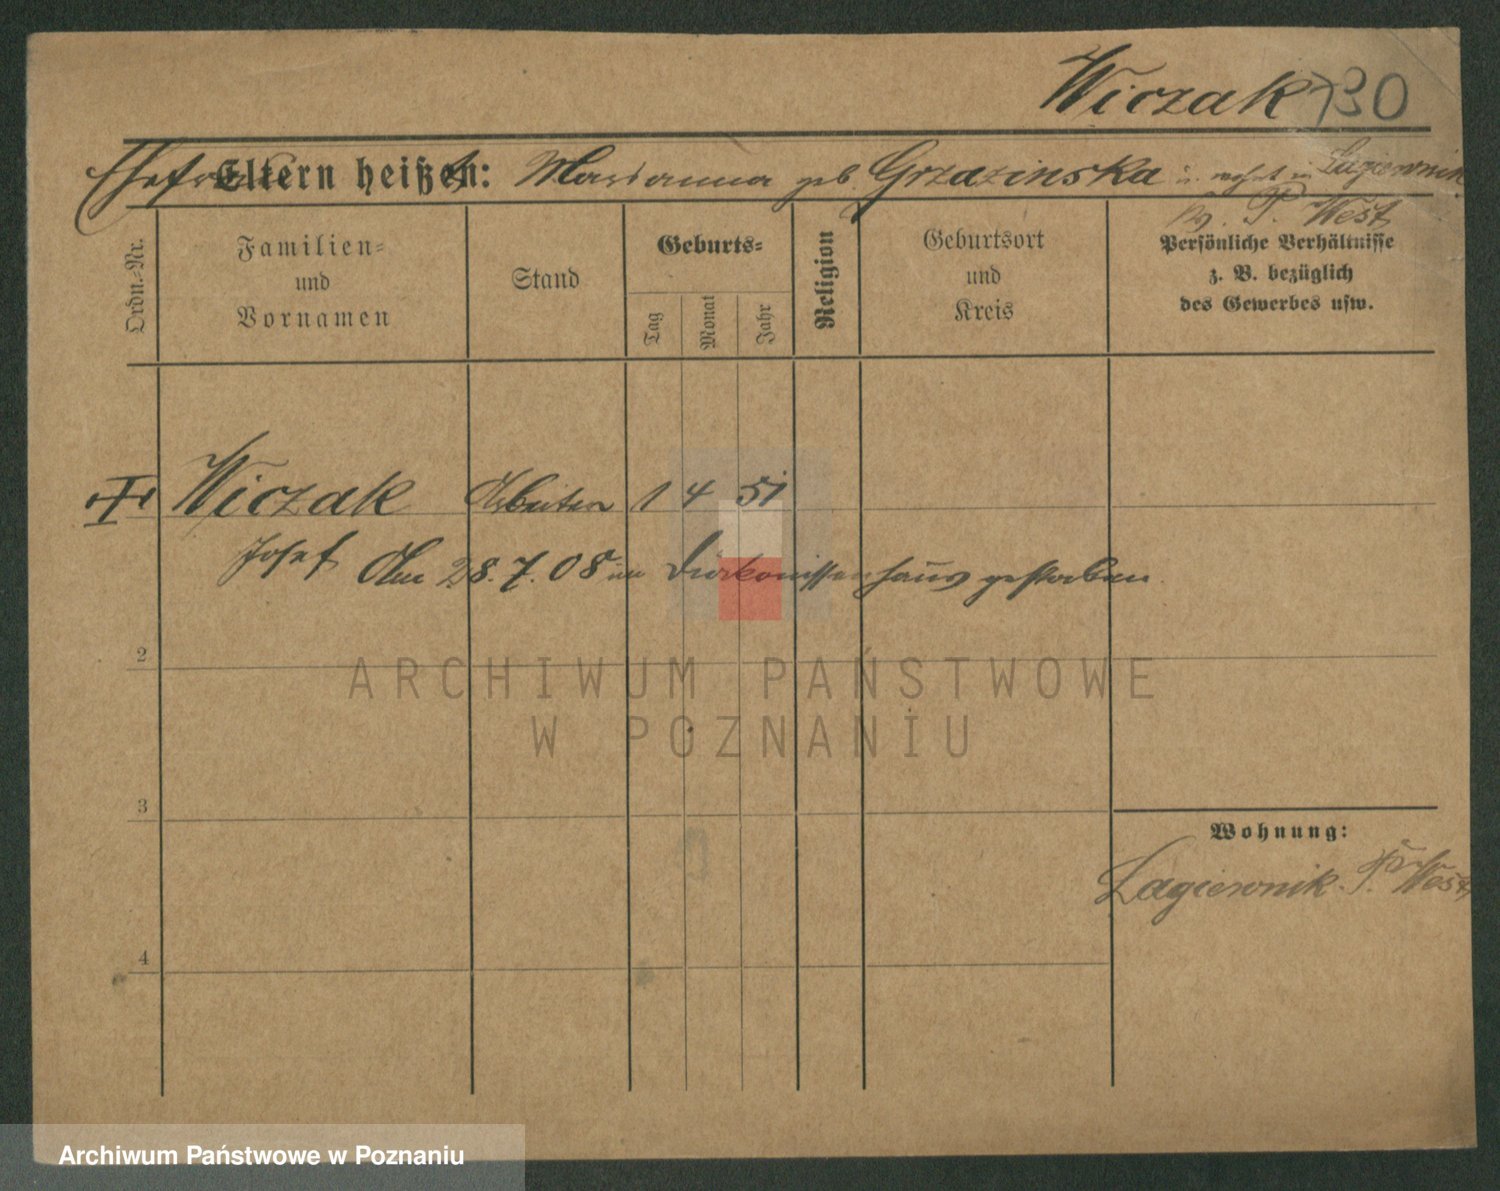 Wiczak 730
Ehefrau Eltern heißen: Marianna geb Grzazinska u. wohnt in Lagiewnik
P. West
Ordn.-Nr.
Familien-
und
Vornamen
Stand
Geburts-
Tag
Monat
Jahr
Religion
Geburtsort
und
Kreis
Persönliche Verhältnisse
z. B. bezüglich
des Gewerbes usw.
Wiczak Arbeiter 1 4 51
Josef Am 28.7.08 im Diakonissenhaus gestorben.
2
ARCHIWUM PAŃSTWOWE
W POZNANIU
3
Wohnung:
Lagiewnik. P. West
4
Archiwum Państwowe w Poznaniu